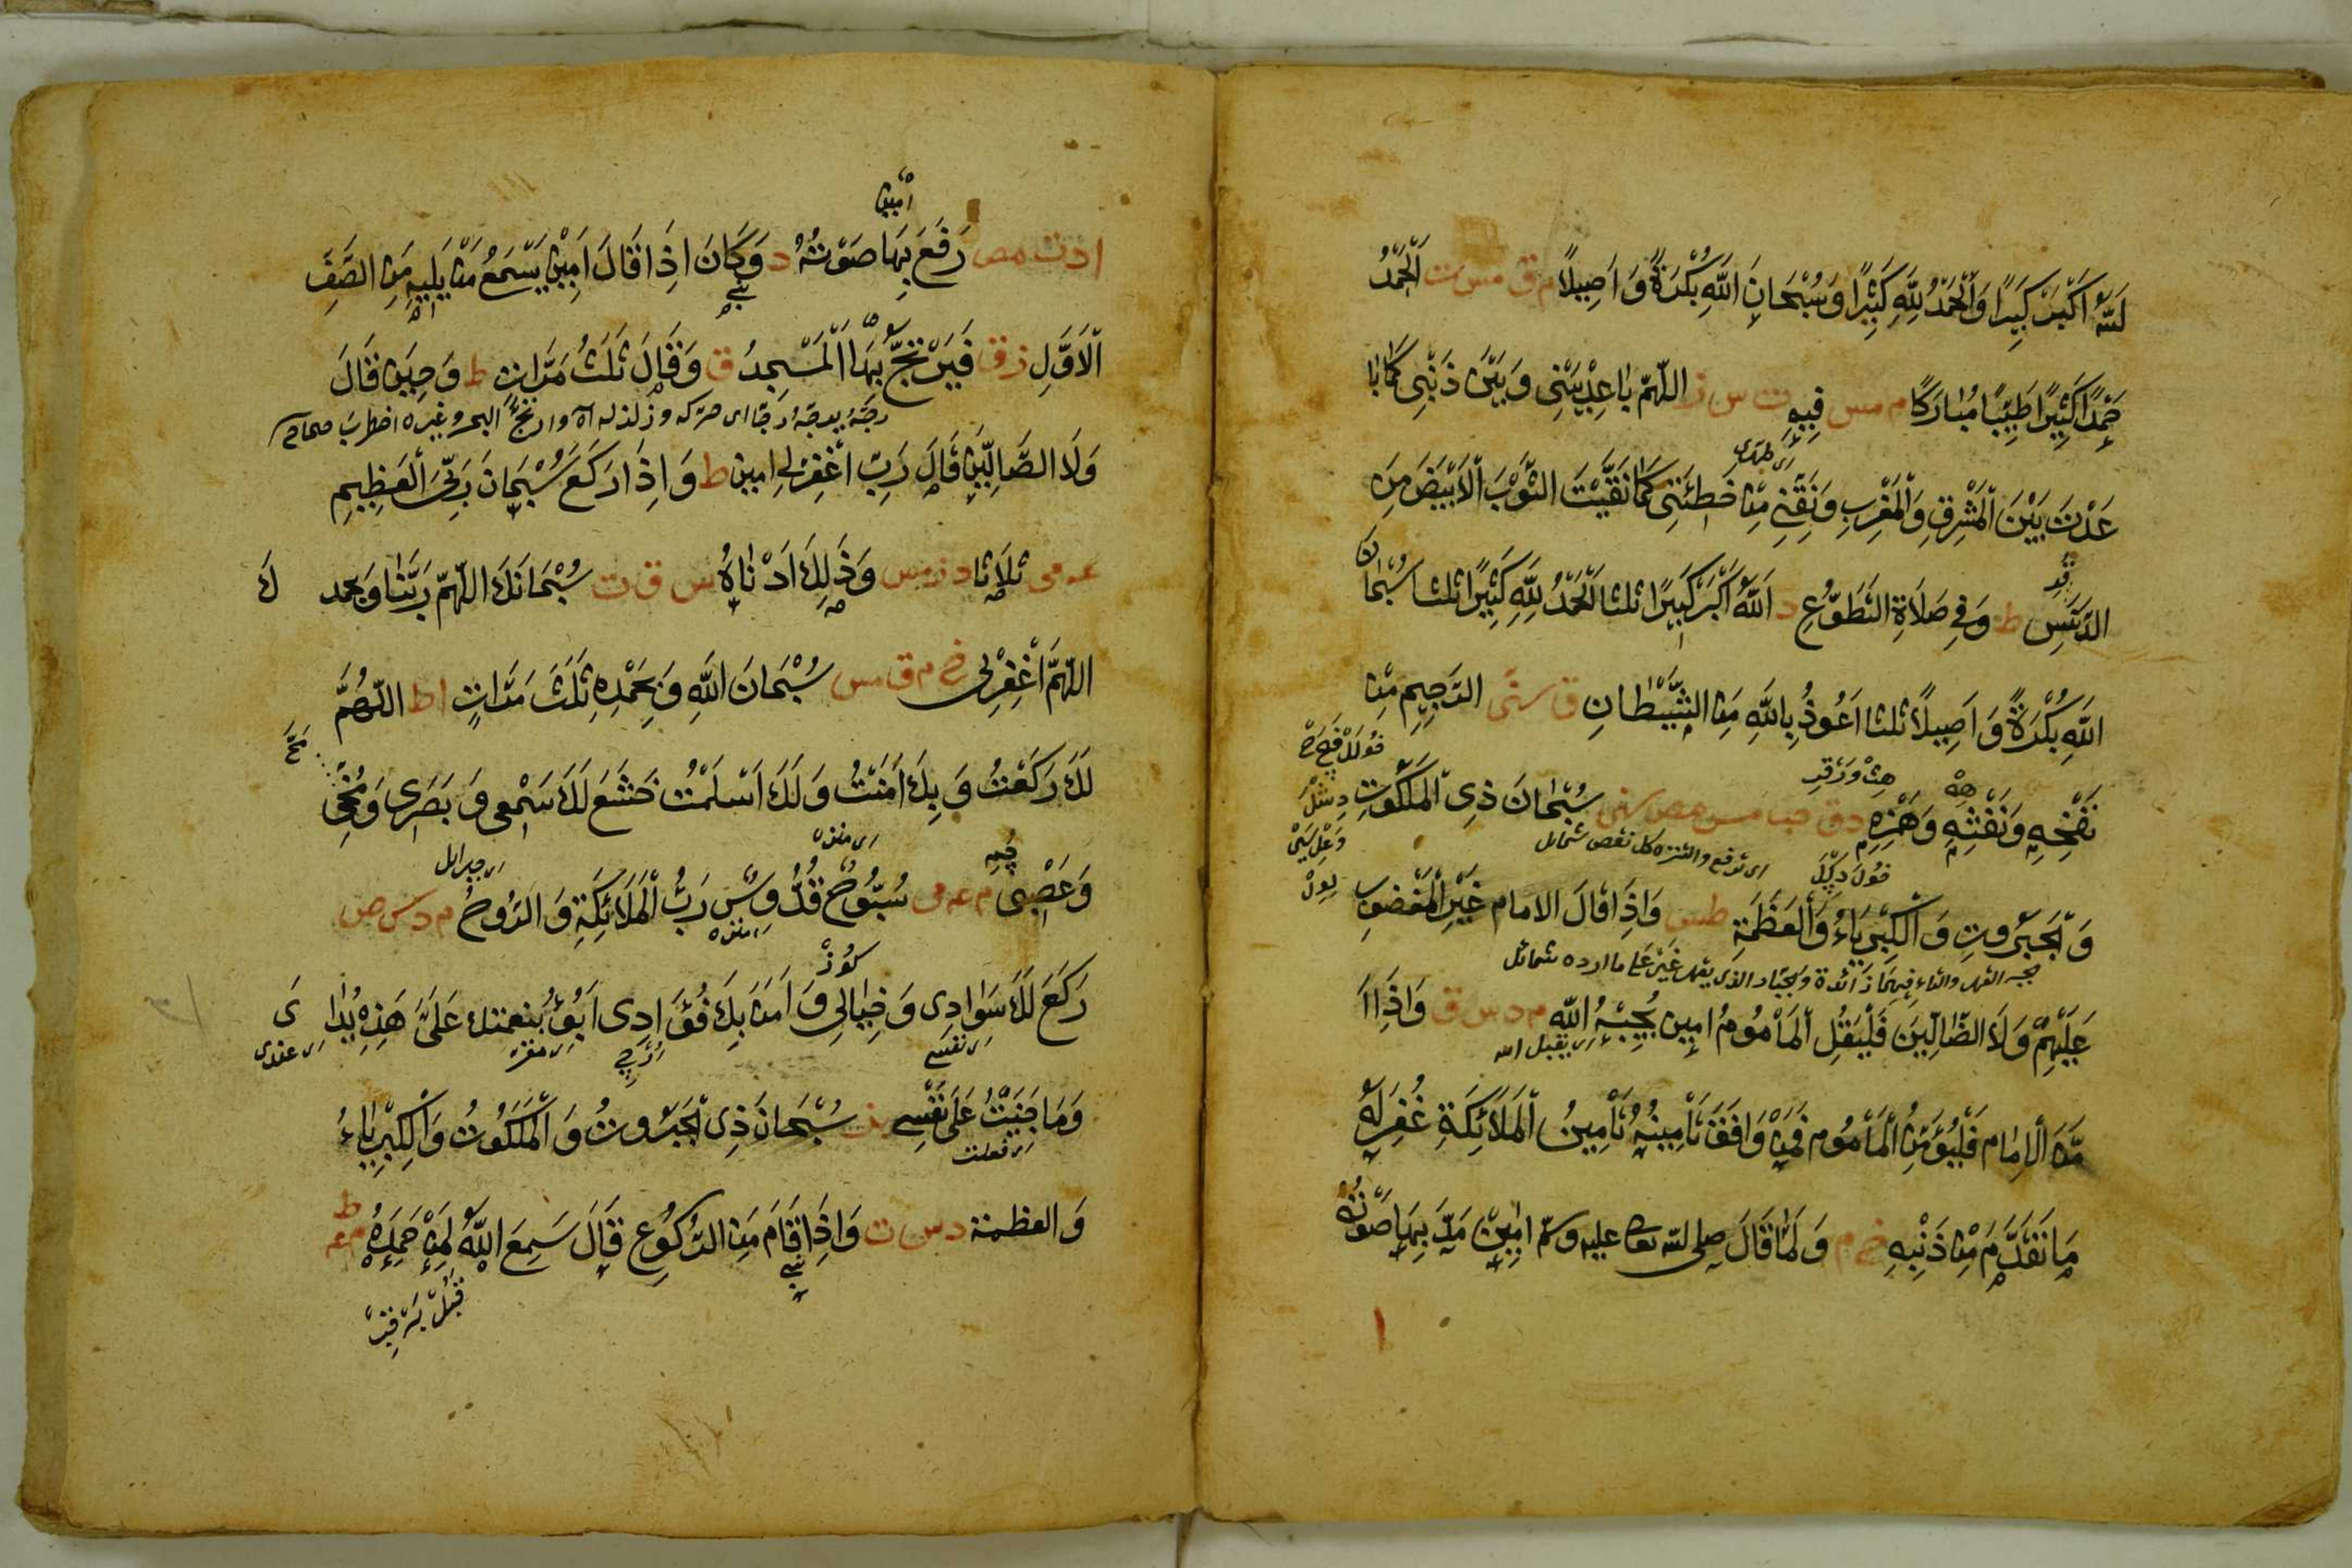 للّٰه اَكْبَرْ كَبِيرًا وَالْحَمْدُ لِلّٰهِ كَثِيْرًا وَسُبْحَانَ اللّٰهِ بُكْرَةً وَ اَصِيلًا م ق مس ت اَلْحَمْدُ
حَمْدًا كَثِيْرًا طَيِّبًا مُبٰارَكًا م مس فِيهِ ت س ز اللّٰهمّ بٰاعِدْ بَيْنِى وَ بَيْنَ ذَنْبِى كَمٰا بٰا
اى طهرنى
عَدْتَ بَيْنَ الْمَشْرِقِ وَالْمَغْرِبِ وَنَقِّنِى مِنْ خطئَتِى كَمٰا نَقَّيْتَ الثَّوْبَ الْاَبْيَضَ مِنَ
الدَّنَسِ ط وَ فِى صَلَاةِ التَطَوُّعِ د اَللّٰهُ اَكْبَرْ كَبِيرًا ثلثا اَلْحَمْدُ لِلّٰهِ كَثِيْرًا ثلثا سُبْحٰانَ
اللّٰهِ بُكْرَةً وَ اَصِيلًا ثلثا اَعُوذُ بِاللّٰهِ مِنَ الشَّيْطٰانِ ق سنى الرَّجِيمِ مِنْ
نَفْخِهِ وَنَفْثِهِ وَهَمْزِهِ د ق حب مس مص سنى سُبْحٰانَ ذِى الْمَلَكُوتِ
اى ترفع والتنزه كل نقص شمائل
وَالْجَبَرُوتِ وَ الْكِبْرِيَاءُ وَالْعَظَمَةِ طس وَاِذَا قَالَ الامام غَيْرِ الْمَغْضُوبِ
عَلَيْهِمْ وَلَا الضَّالِّيْنَ فَلْيَقُلِ الْمَاْمُومُ امين يُجِبْهُ اللّٰه م د س ق وَ اِذَا اَ
اى يقبل الله
مَّنَ الْاِمٰام فَلْيُؤَمِّنِ الْمَاْمُوم فَمَنْ وَافَقَ تَاْمِينُهُ تَاْمِينُ الْمَلَائِكَةِ غُفِرَ لَهُ
مَا تَقَدَّمَ مِنْ ذَنْبِهِ خ م وَ لَمّٰا قَالَ صلى الله تعالى عليه وسلم امِيْن مَدَّ بِهَا صَوْتَهُ
ا د ت مص رَفَعَ بِهَا صَوْتَهُ د وَ كَانَ اِذَا قَالَ اَمِيْن يَسْمَعُ مَنْ يَلِيهِ مِنَ الصَّفِّ
الْاَوَّلِ د ق فَيَرْتَجُّ بِهَا الْمَسْجِدُ ق وَ قَالَ ثَلَثُ مَرَّاتٍ ط وَ حِيْنَ قَالَ
رجّه يرجّه رجّا اى حركه وزلزله اه وارتجّ البحر وغيره اضطرب صحاح
وَلَا الضَّالِّيْنَ قَالَ رَبِّ اغْفِرْلِى امين ط وَ اِذَا رَكَعَ سُبْحَانَ رَبِّىَ الْعَظِيمِ
عه مى ثَلَاثًا د ز مس وَ ذٰلِكَ اَدْنٰاهُ س ق ت سُبْحَانَكَ اللّٰهمّ رَبَّنٰا وَبحمد كَ
اللّٰهمّ اغْفِرْلِى خ م ق مس سُبْحَانَ اللّٰهِ وَ بِحَمْدِهِ ثَلَثَ مَرَّاتٍ ا ط اللّٰهُمَّ
لَكَ رَكَعْتُ وَ بِكَ اَمَنْتُ وَ لَكَ اَسْلَمْتُ خَشَعَ لَكَ سَمْعِى وَ بَصَرِى وَ مُخِّى
اى منزه
اى جبرائل
وَ عَصْبِى م عه مى سُبُّوحٌ قُدُّوسٌ رَبُّ الْمَلَائِكَةِ وَ الرُّوحُ م د س ص
رَكَعَ لَكَ سَوٰادِى وَ خِيٰالِى وَ اَمَنَ بِكَ فُؤَادِى اَبُؤُ بنعمتك عَلَىَّ هَذِهِ يُدٰا ىَ
اى نفسى
وَ مَا جَنَيْتُ عَلَى نَفْسِى ز سُبْحَانَ ذِى الْجَبَرُوتُ وَ الْمَلَكُوتُ وَالْكِبْرِيٰاءُ
اى فعلت
وَ العظمة د س ت وَ اِذَا قَامَ مِنَ الرُّكُوعِ قَالَ سَمِعَ اللّٰهُ لِمَنْ حَمِدَهُ م عه ط